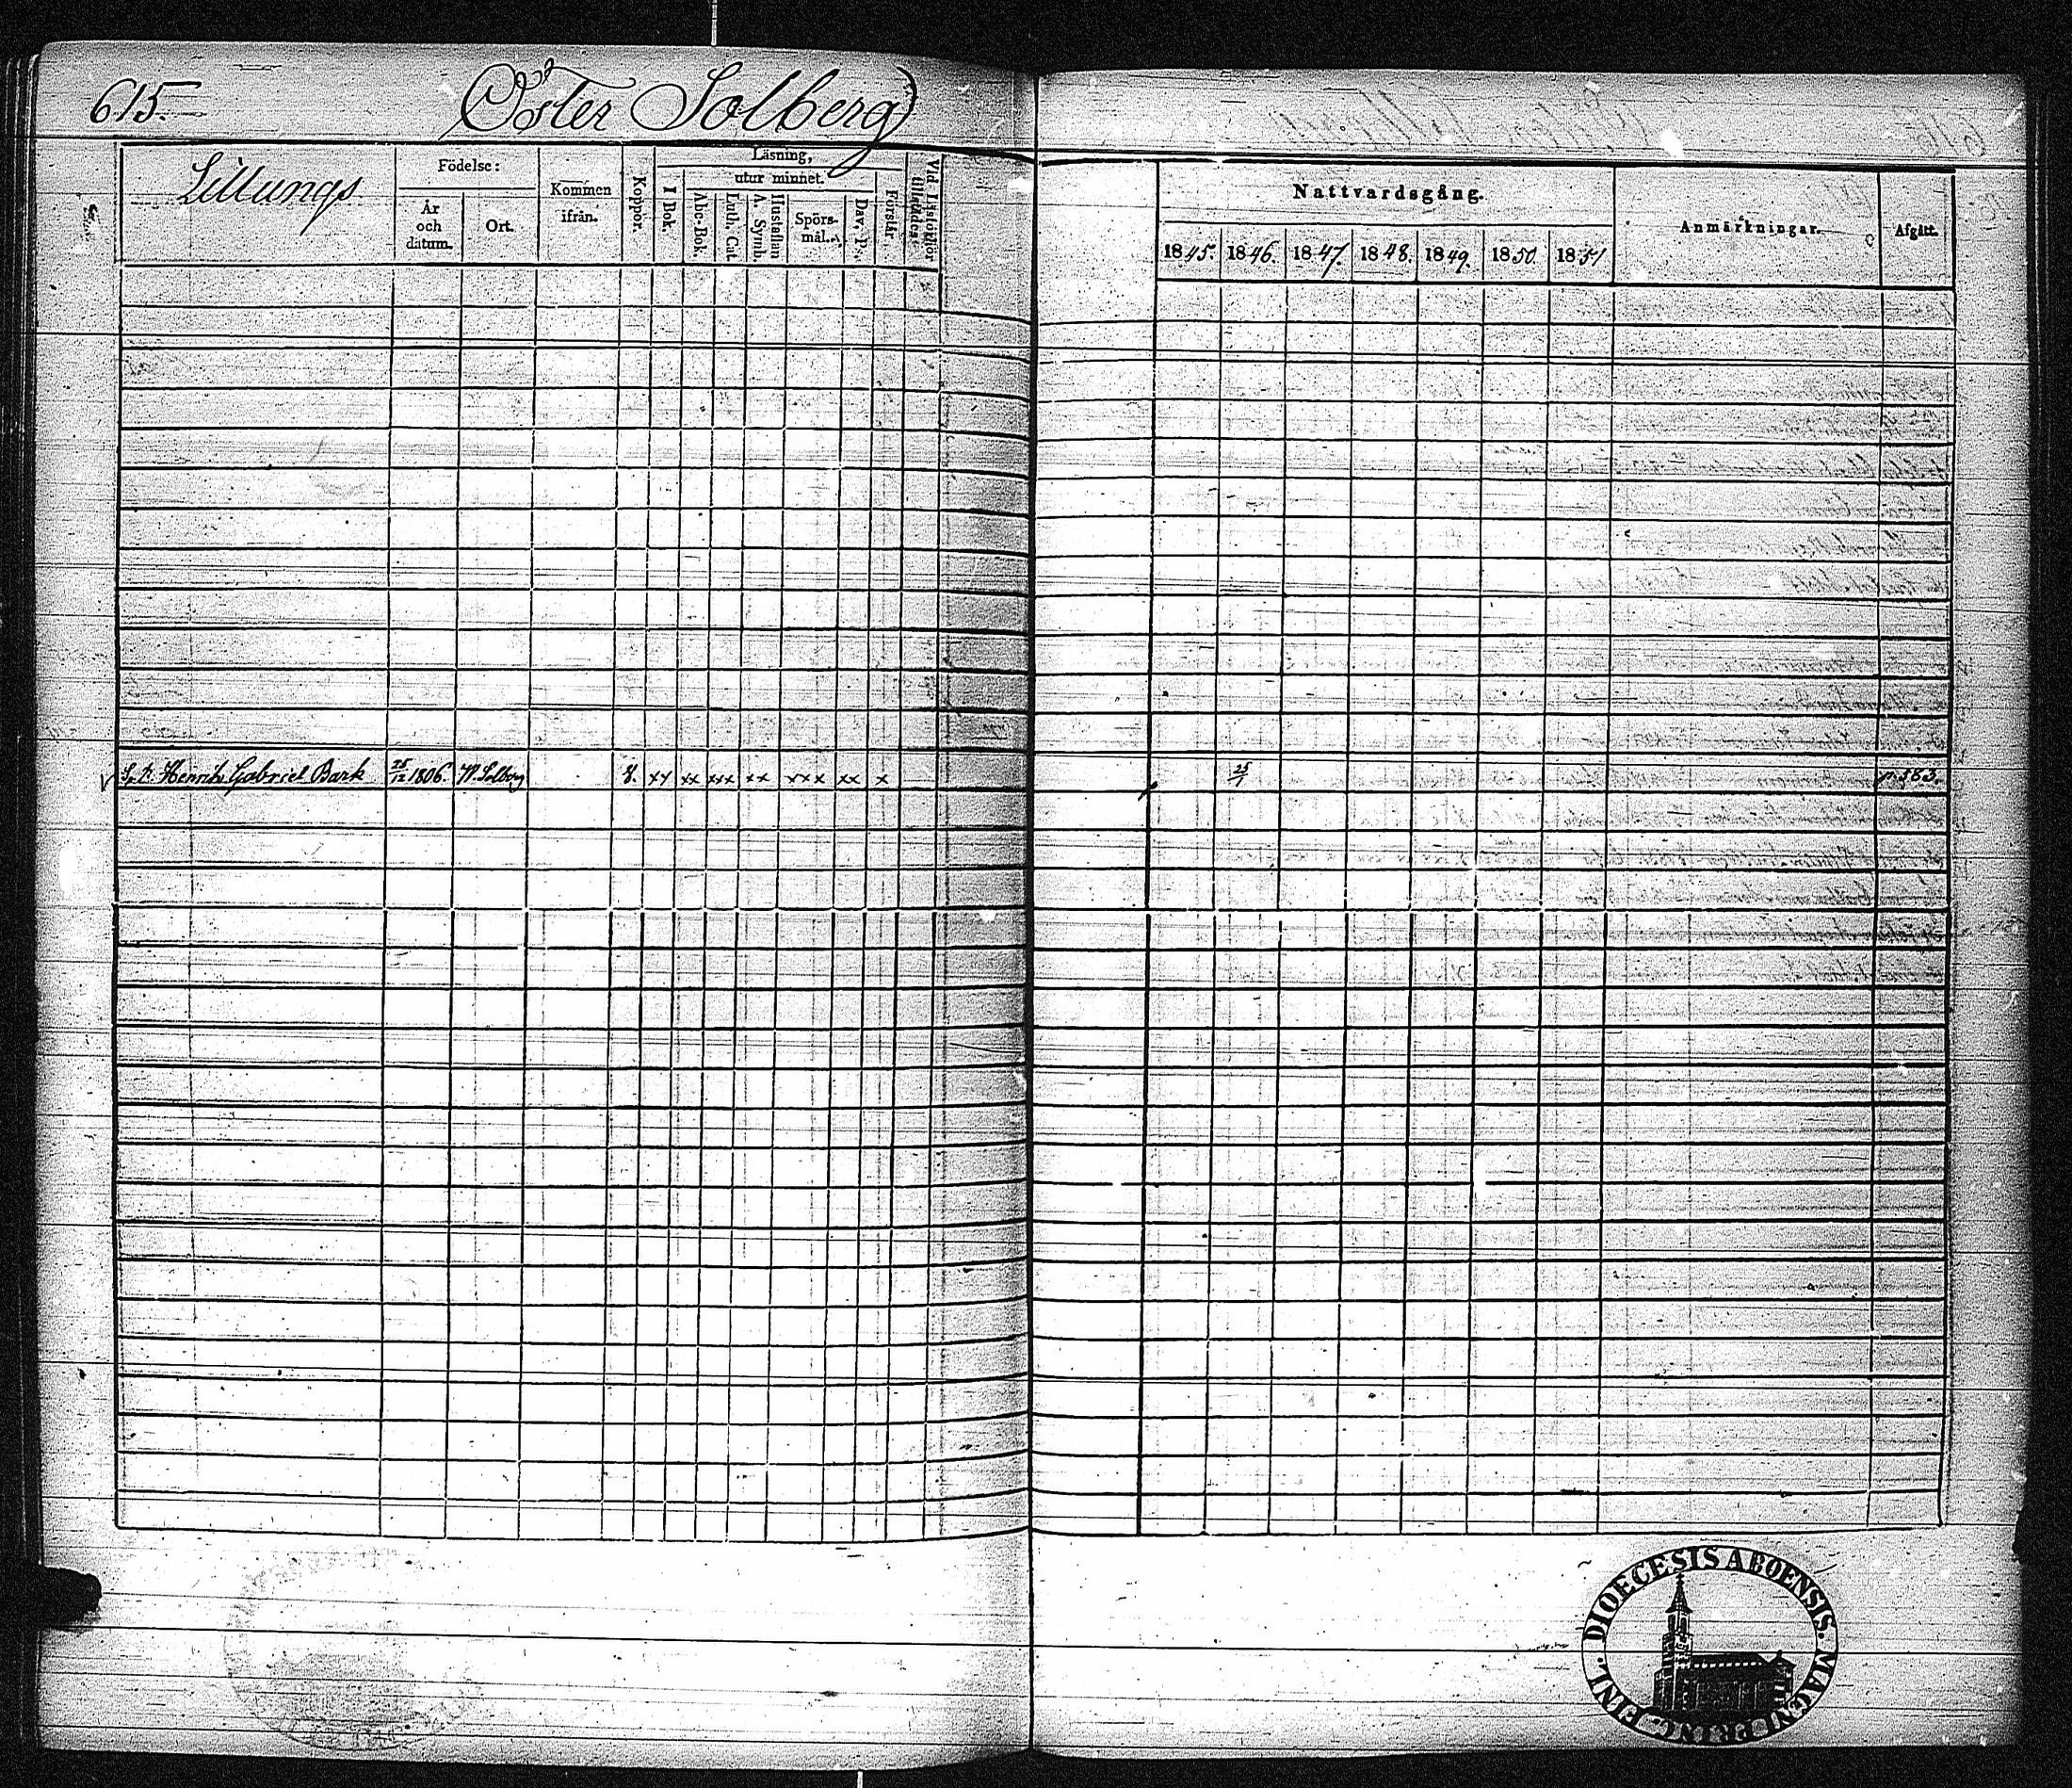 615.
Öster Solberg
Lillungs
Födelse:
År och datum.
Ort.
Kommen ifrån.
Koppor.
Läsning,
I Bok.
utur minnet.
Abc-Bok.
Luth. Cat
Hustaflan A. Symb.
Spörsmål.
Dav. P.
Förstår.
Vid Läsförhör tillstädes:
Nattvardsgång.
1845. 1846. 1847. 1848. 1849. 1850. 1851
Anmärkningar.
Afgått.
Henrik Gabriel Bark 25/12 1806. W. Solberg xx xx xxx xx xxx xx x 25/1 p. 583.
DIOECESIS ABOENSIS. MAGNI PRINC. FINL.